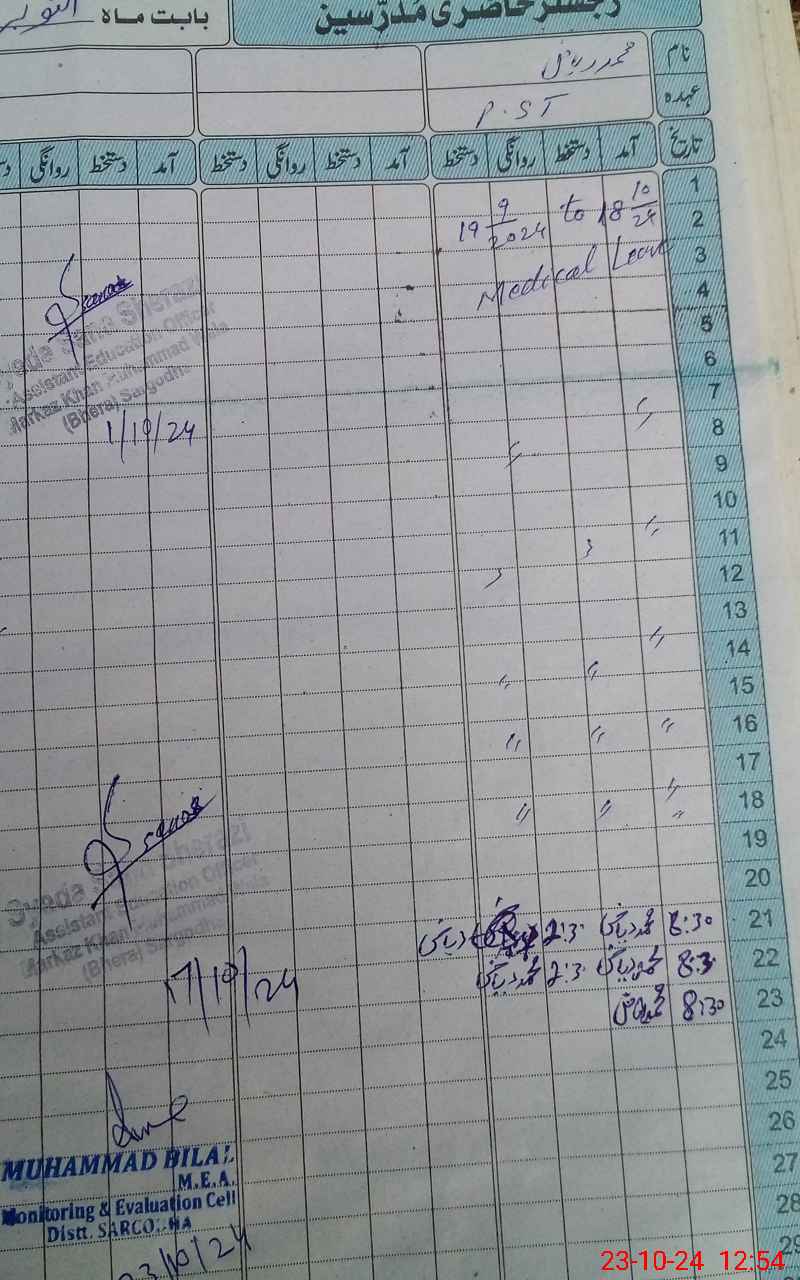 رجسٹر حاضری مُدرّسین
بابت ماہ اکتوبر
نام محمد ریاض
عہدہ P.ST
تاریخ آمد دستخط روانگی دستخط آمد دستخط روانگی دستخط آمد دستخط روانگی
1
2
3
4
5
6
7
8
9
10
11
12
13
14
15
16
17
18
19
20
21
22
23
24
25
26
27
28
29
19 9/2024 to 18 10/24
Medical Leave
〃
〃
〃
〃 〃 〃
〃 〃 〃
〃 〃 〃
〃
8:30 محمد ریاض 2:3.
8:3. محمد ریاض 2:3. محمد ریاض
8:30 محمد ریاض
Assistant Education Officer
Markaz Khan Muhammad Wala
(Bhera) Sargodha
1/10/24
Syeda Sherazi
Assistant Education Officer
Markaz Khan Muhammad Wala
(Bhera) Sargodha
17/10/24
MUHAMMAD BILAL
M.E.A.
Monitoring & Evaluation Cell
Distt. SARGODHA
23/10/24
23-10-24 12:54